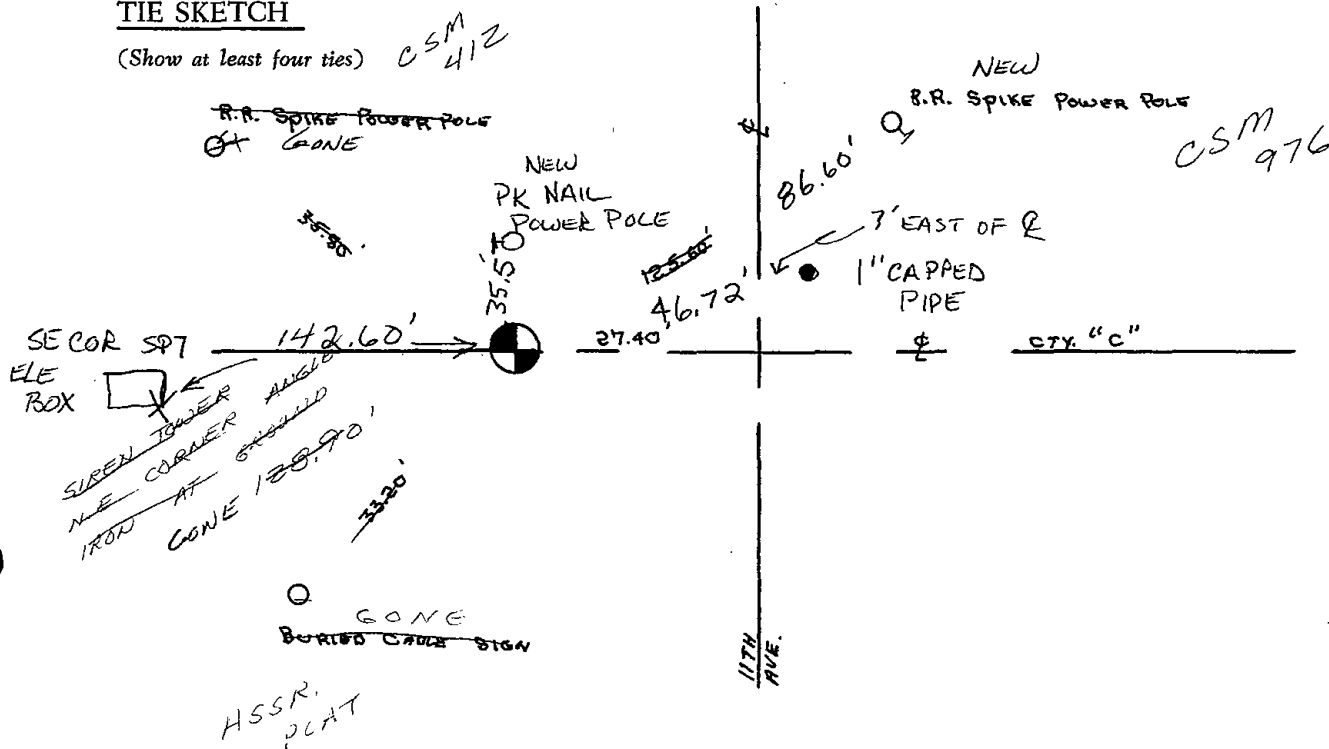 TIE SKETCH
(Show at least four ties)
CSM
412
R.R. SPIKE POWER POLE
GONE
NEW
R.R. SPIKE POWER POLE
CSM
976
℄
86.60'
NEW
PK NAIL
POWER POLE
35.80'
125.60'
7' EAST OF ℄
1" CAPPED
PIPE
35.5'
46.72'
SE COR SP7
142.60'
27.40'
℄
CTY. "C"
ELE
BOX
SIREN TOWER ANGLE
N.E. CORNER
IRON AT GROUND
GONE 128.90'
33.20'
GONE
BURIED CABLE SIGN
11TH
AVE.
HSSR.
PLAT